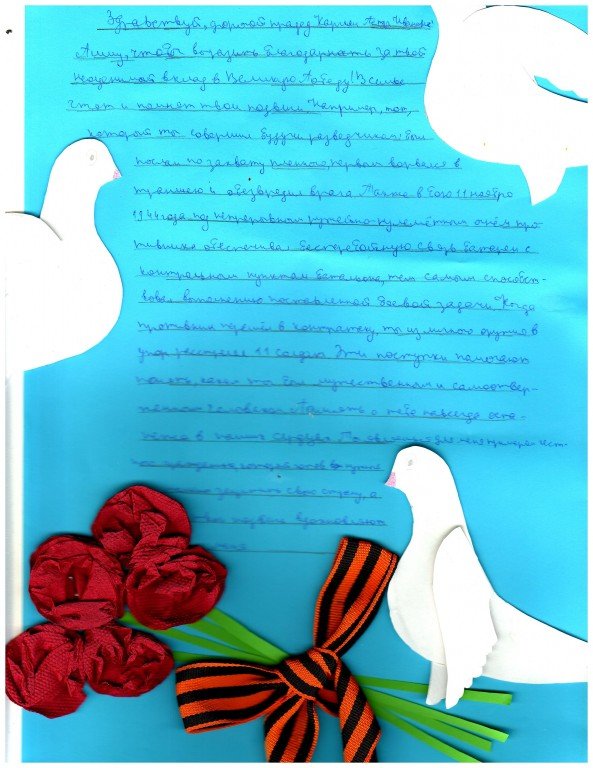 Здравствуй, дорогой прадед Карпин
Пишу, чтобы выразить благодарность за твой
неоценимый вклад в Великую Победу! В семье
чтят и помнят твои подвиги. Например, тот,
который ты совершил будучи разведчиком: был
послан по захвату пленного, первым ворвался в
траншею и обезвредил врага. Также в бою 11 ноября
1944 года под непрерывным ружейно-пулемётным огнём про-
тивника обеспечивал бесперебойную связь батареи с
контрольным пунктом батальона, тем самым способст-
вовал выполнению поставленной боевой задачи. Когда
противник перешёл в контратаку, ты из личного оружия в
упор расстрелял 11 солдат. Эти поступки помогают
понять, каким ты был мужественным и самоотвер-
женным человеком. Память о тебе навсегда оста-
нется в наших сердцах. Ты являешься для меня примером
защитить свою страну, а
подвиги вдохновляют
меня